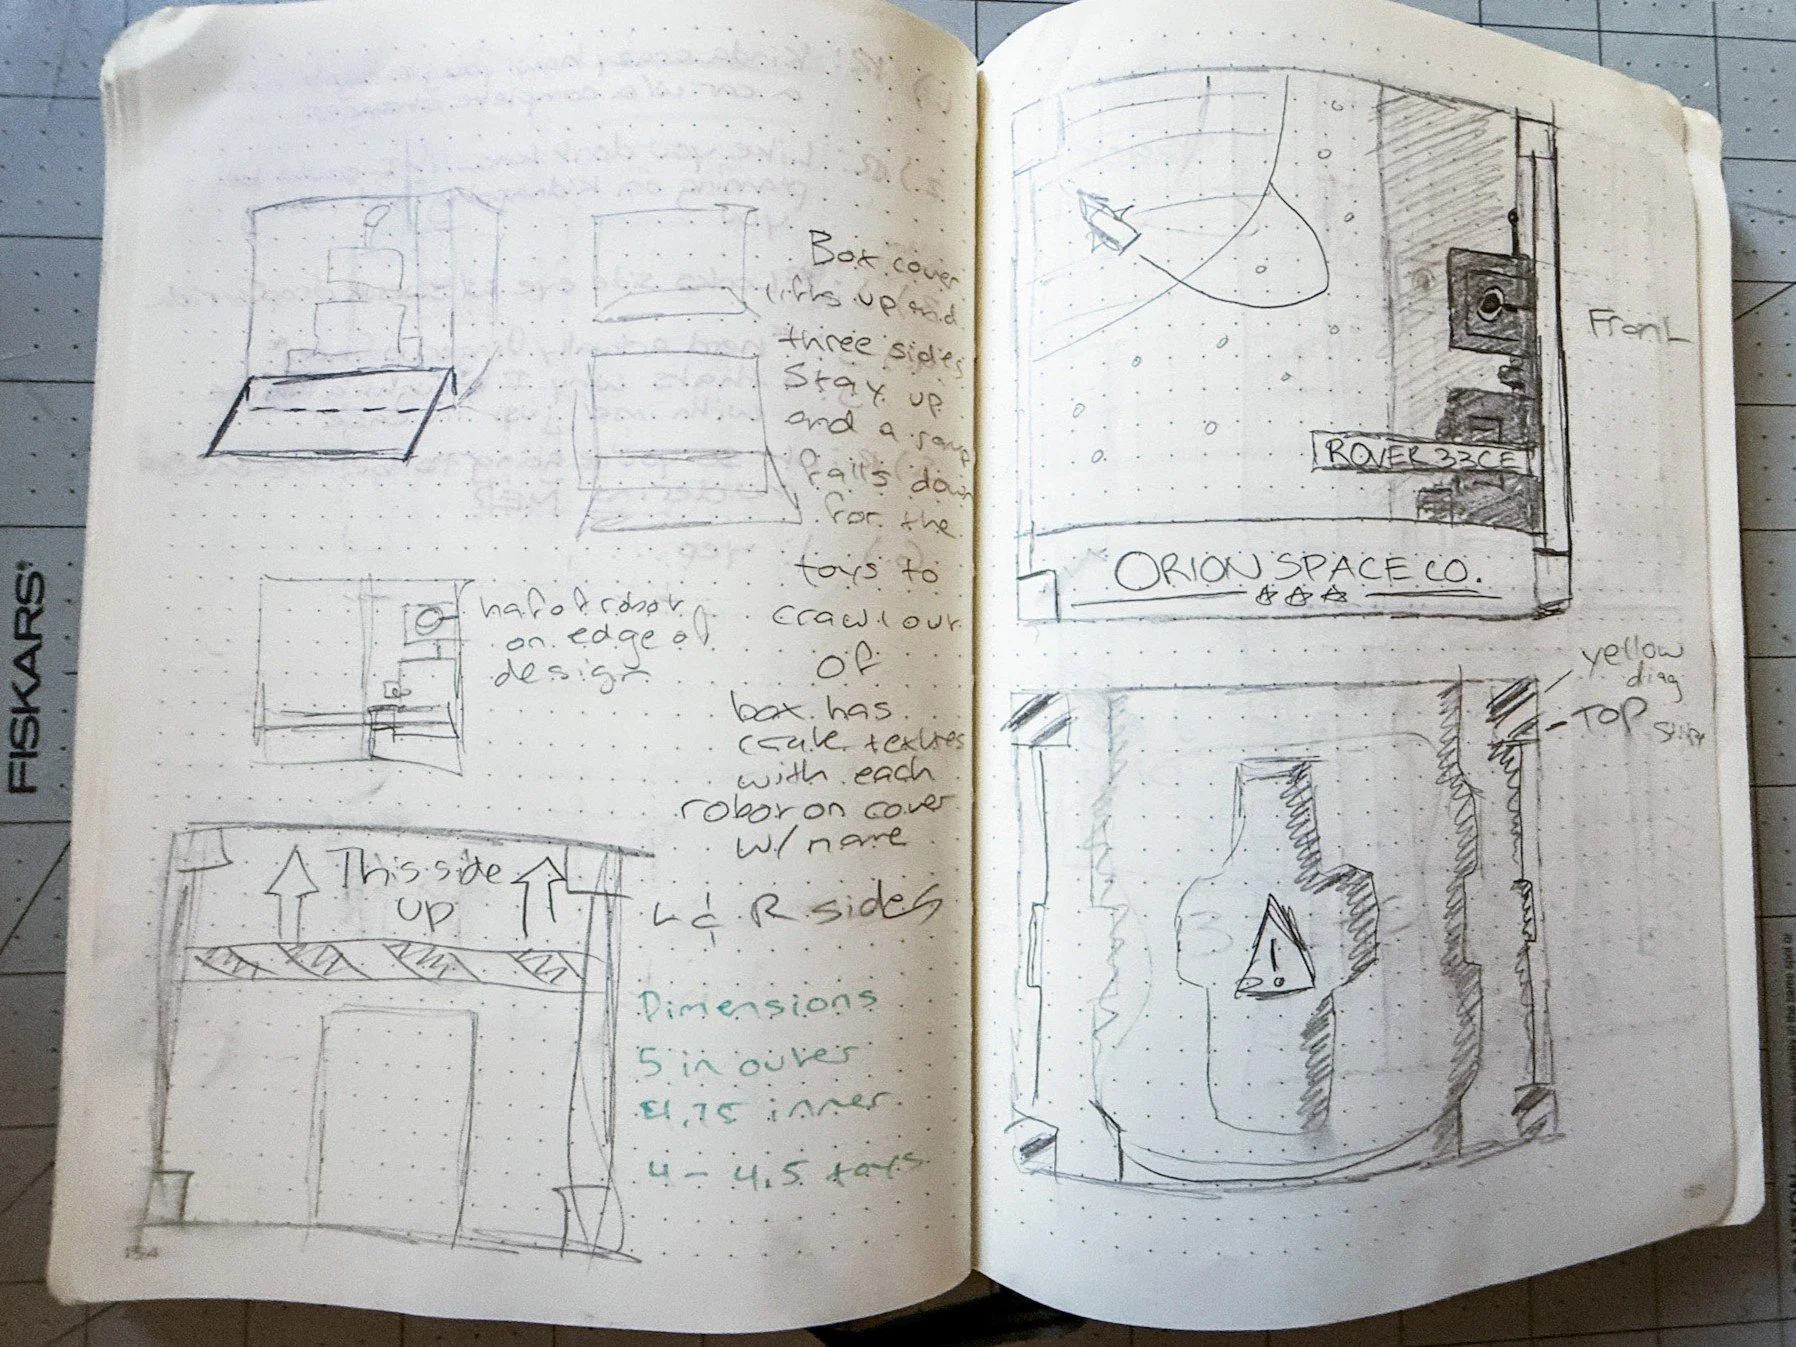 Box cover
lifts up and
three sides
stay up
and a ramp
falls down
for the
toys to
crawl out
of
half of robot
on edge of
design
box has
crate textures
with each
robot on cover
w/ name
This side
up
L & R sides
Dimensions
5 in outer
4.75 inner
4 - 4.5 toys
154
FISKARS
Front
ROVER 33CE
ORION SPACE CO.
yellow
diag
TOP
!